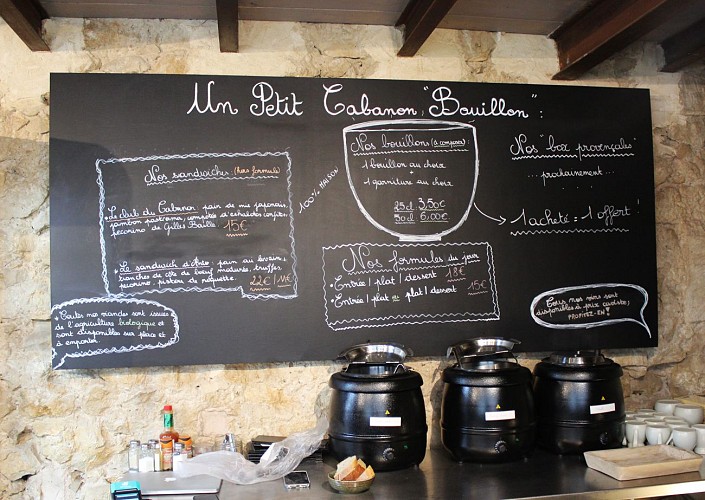 Un Petit Cabanon "Bouillon" :
Nos sandwiches (hors formule)
Le club du Cabanon : pain de mie japonais,
jambon pastrama, compotée d'échalotes confites,
pecorino de Gilles Baille 15€
Le sandwich d'Olive : pain au levain,
tranches de côte de boeuf maturée, truffes,
pecorino, pistou de roquette. 22€ / 11€
Toutes nos viandes sont issues
de l'agriculture biologique et
sont disponibles sur place et
à emporter.
100% MAISON
Nos bouillons (à composer)
1 bouillon au choix
+
1 garniture au choix
25 cl 3,50€
50 cl 6,00€
Nos formules du jour
Entrée / plat / dessert 18€
Entrée / plat ou plat / dessert 15€
Nos "box provençales"
...prochainement...
1 acheté = 1 offert !
Tous nos vins sont
disponibles à prix caviste,
PROFITEZ-EN !